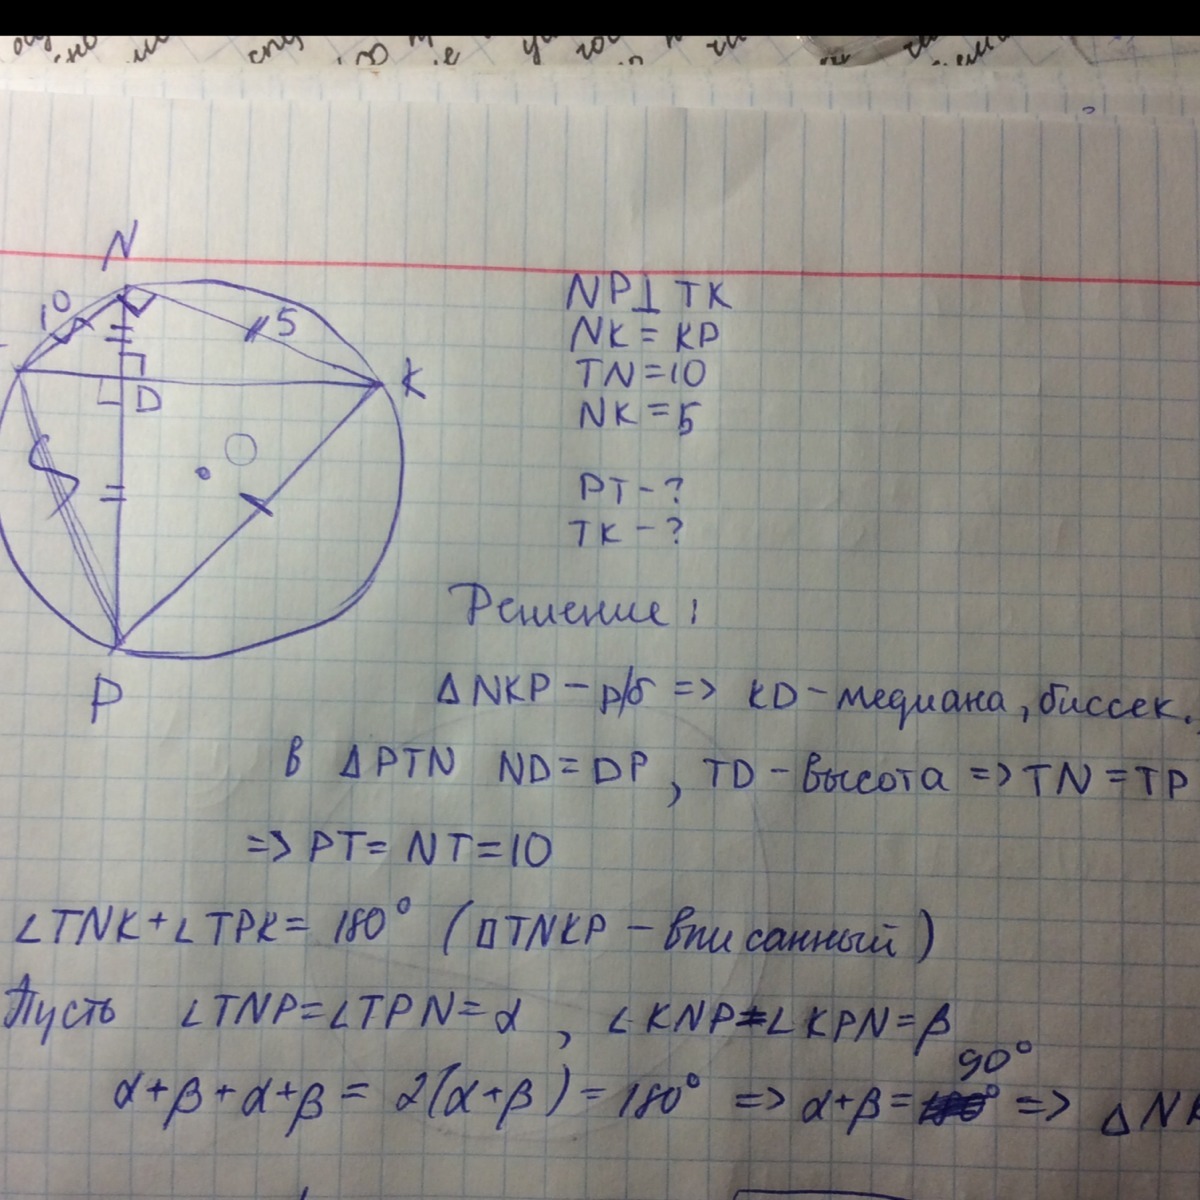 N
10
5
K
D
O
P
NP⊥TK
NK = KP
TN = 10
NK = 5
PT - ?
TK - ?
Решение:
△NKP - р/б => KD - медиана, биссек.,
В △PTN ND = DP, TD - высота => TN = TP
=> PT = NT = 10
∠TNK + ∠TPK = 180° (□TNKP - вписанный)
Пусть ∠TNP = ∠TPN = α, ∠KNP = ∠KPN = β
α + β + α + β = 2(α + β) = 180° => α + β = 90° => △N